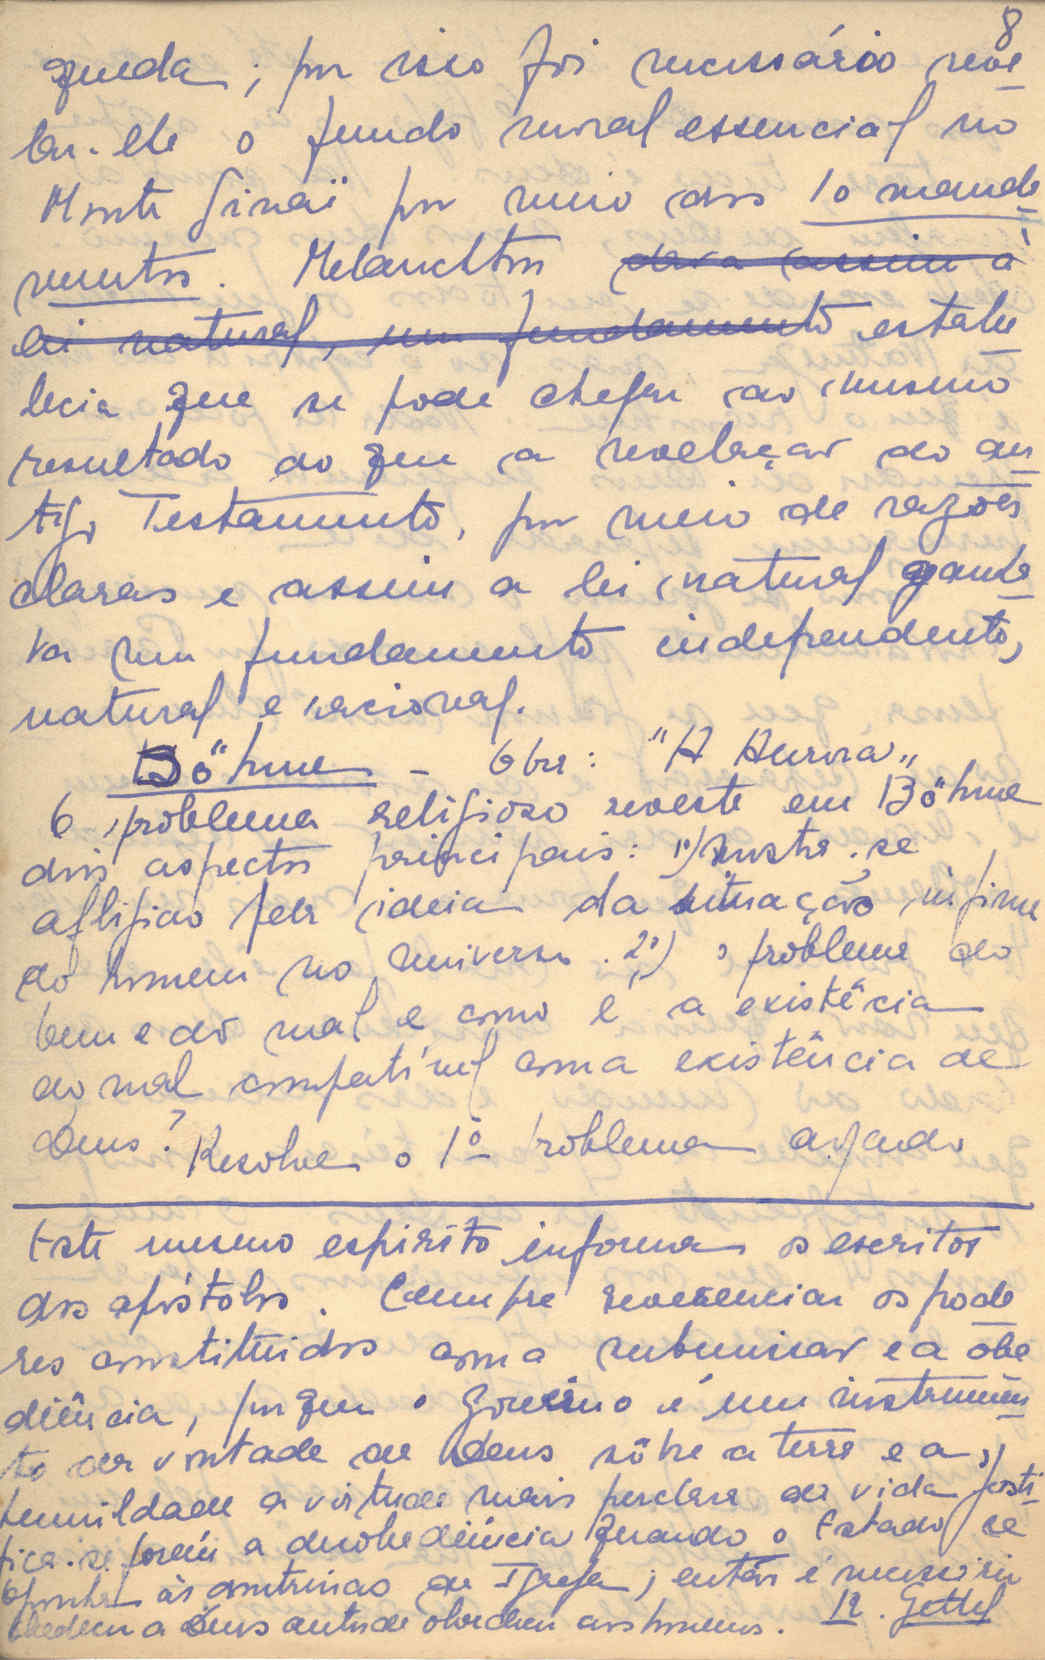 8
queda; por isso foi necessário reve
lar-lhe o fundo moral essencial no
Monte Sinaï por meio dos 10 manda
mentos. Melanchton dava assim à
lei natural, um fundamento estabe
lecia que se pode chegar ao mesmo
resultado do que a revelação do an
tigo Testamento, por meio de razões
claras e assim a lei natural ganha
va um fundamento independente,
natural e racional.
Böhme - Obr: "A Aurora"
O problema religioso reveste em Böhme
dois aspectos principais: 1º) mostra-se
afligido pela ideia da situação ínfima
do homem no universo. 2º) o problema do
bem e do mal e como é a existência
do mal compatível com a existência de
Deus? Resolve o 1º problema dizendo
Este mesmo espirito informa os escritos
dos apóstolos. Cumpre reverenciar os pode
res constituidos com a submissão e a obe
diência, porque o govêrno é um instrumen
to da vontade de Deus sôbre a terra e a
humildade a virtude mais perclara da vida, Justi
fica-se porém a desobediência quando o Estado se
opunha às doutrinas da Igreja; então é necessário
obedecer a Deus antes de obedecer aos homens. R. Gettel